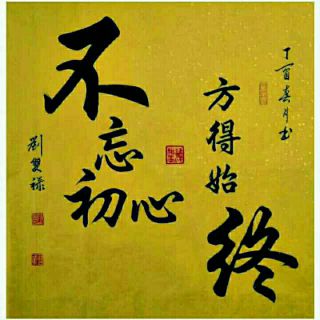 不忘初心
方得始終
丁酉春月书
劉雙禄